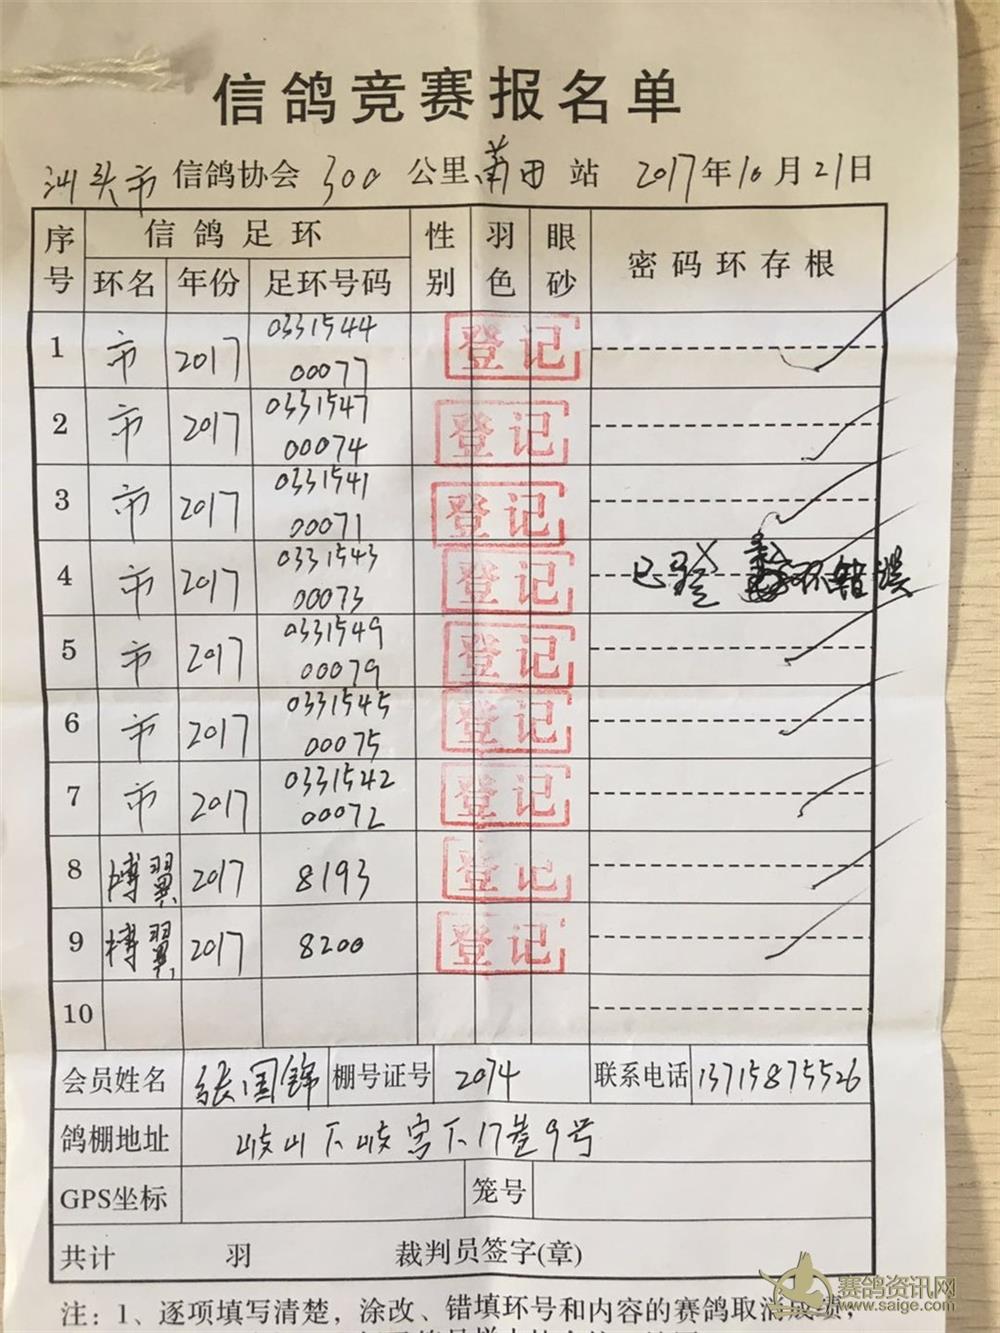 信鸽竞赛报名单
汕头市 信鸽协会 300 公里 莆田 站 2017年10月21日
序号 信鸽足环 性别 羽色 眼砂 密码环存根
环名 年份 足环号码
1 市 2017 0331544 00077 登记
2 市 2017 0331547 00074 登记
3 市 2017 0331541 00071 登记
4 市 2017 0331543 00073 登记 已登 环错误
5 市 2017 0331549 00079 登记
6 市 2017 0331545 00075 登记
7 市 2017 0331542 00072 登记
8 博翼 2017 8193 登记
9 博翼 2017 8200 登记
10
会员姓名 张国锦 棚号证号 2074 联系电话 13715875526
鸽棚地址 岐山下岐宫下17巷9号
GPS坐标 笼号
共计 羽 裁判员签字(章)
注：1、逐项填写清楚，涂改、错填环号和内容的赛鸽取消成绩，
赛鸽资讯网
www.saige.com